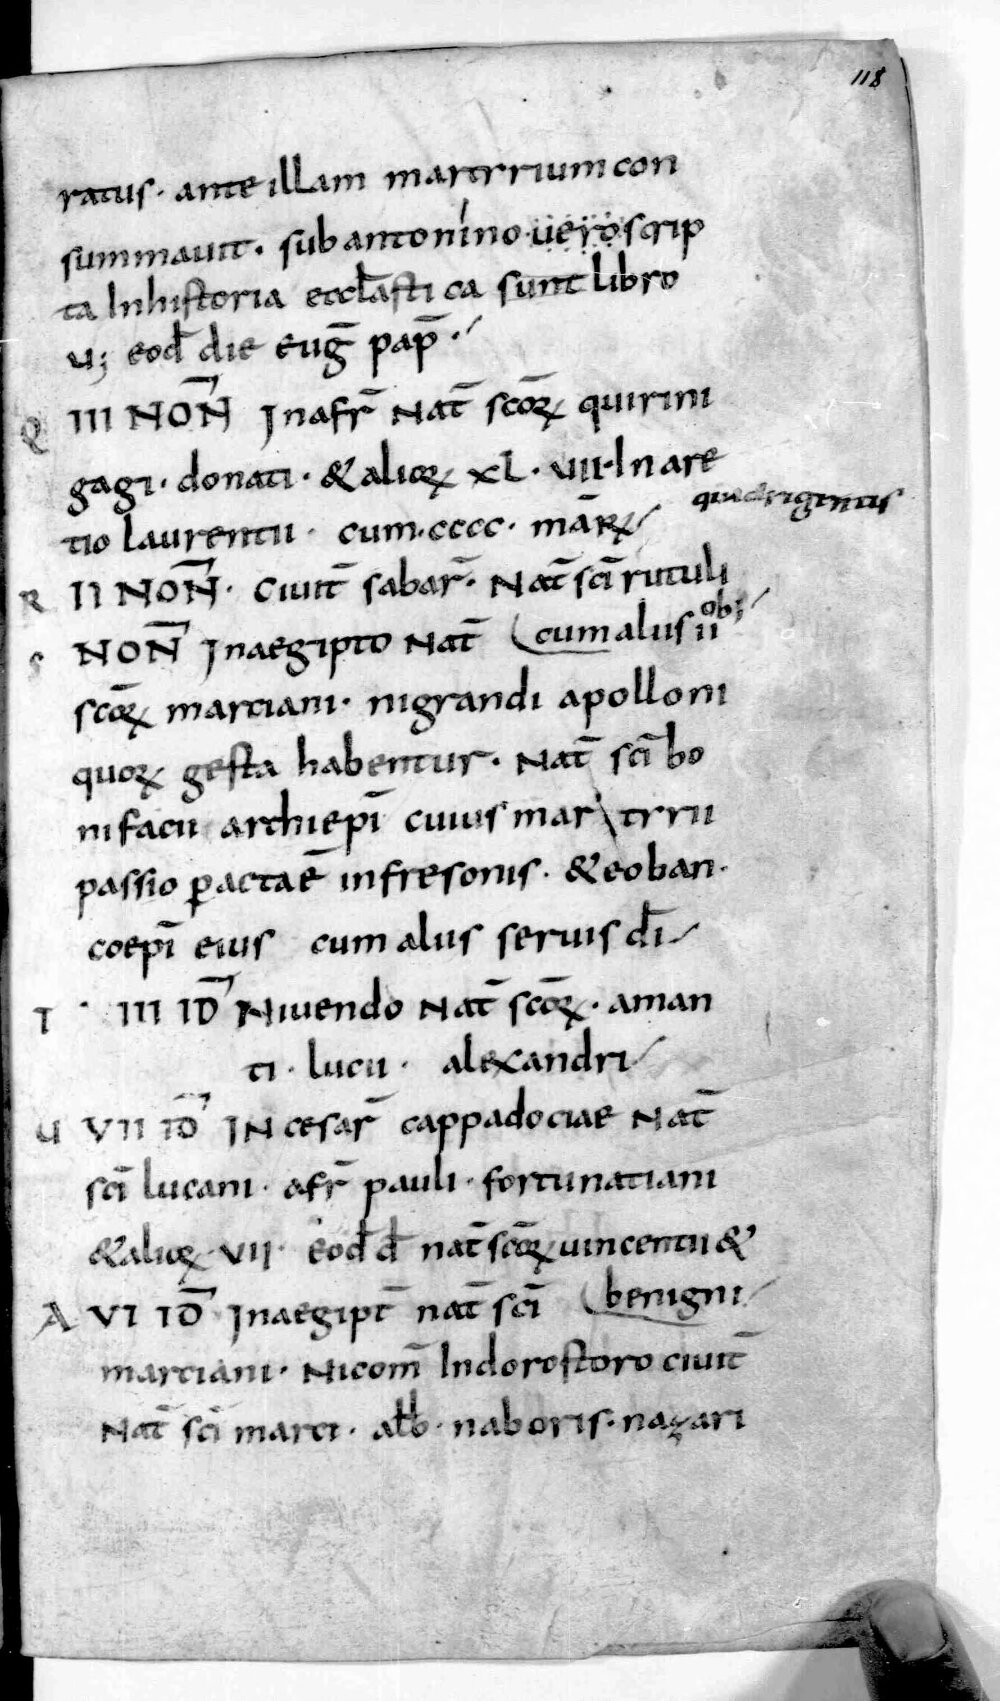 118
ratus· ante illam martyrium con
summauit· sub antonino· uero scrip
ta In historia eccl̄astica sunt libro
u; eod̄ die euḡ pap̄·
Q III NOÑ In afr̄ Nat̄ sc̄oꝝ quirini
gagi· donati· & alioꝝ XL· VII· In are
quadrigentis
tio laurentii· cum· cccc· mār̄ꝝ
R II NOÑ· Ciuit̄ sabar̄· Nat̄ sc̄i rutuli
S NOÑ In aegipto Nat̄ cum aliis ii obꝫ
sc̄oꝝ marciani· nigrandi apolloni
quoꝝ gesta habentur· Nat̄ sc̄i bo
nifacii archiep̄i cuius martyrii
passio ꝑacta ē in fresonis· & eoban·
coep̄i eius cum aliis seruis d̄i
T III ID̄ Niuendo Nat̄ sc̄oꝝ· aman
ti· lucii· alexandri
U VII ID̄ IN cesar̄ cappadociae Nat̄
sc̄i lucani· afr̄ pauli· fortunatiani
& alioꝝ· VII· eod̄ d̄ nat̄ sc̄oꝝ uincentii &
A VI ID̄ In aegipt̄ nat̄ sc̄i benigni
marciani· Nicom̄ In dorostoro ciuit̄
Nat̄ sc̄i marci· alb̄· naboris· nazari